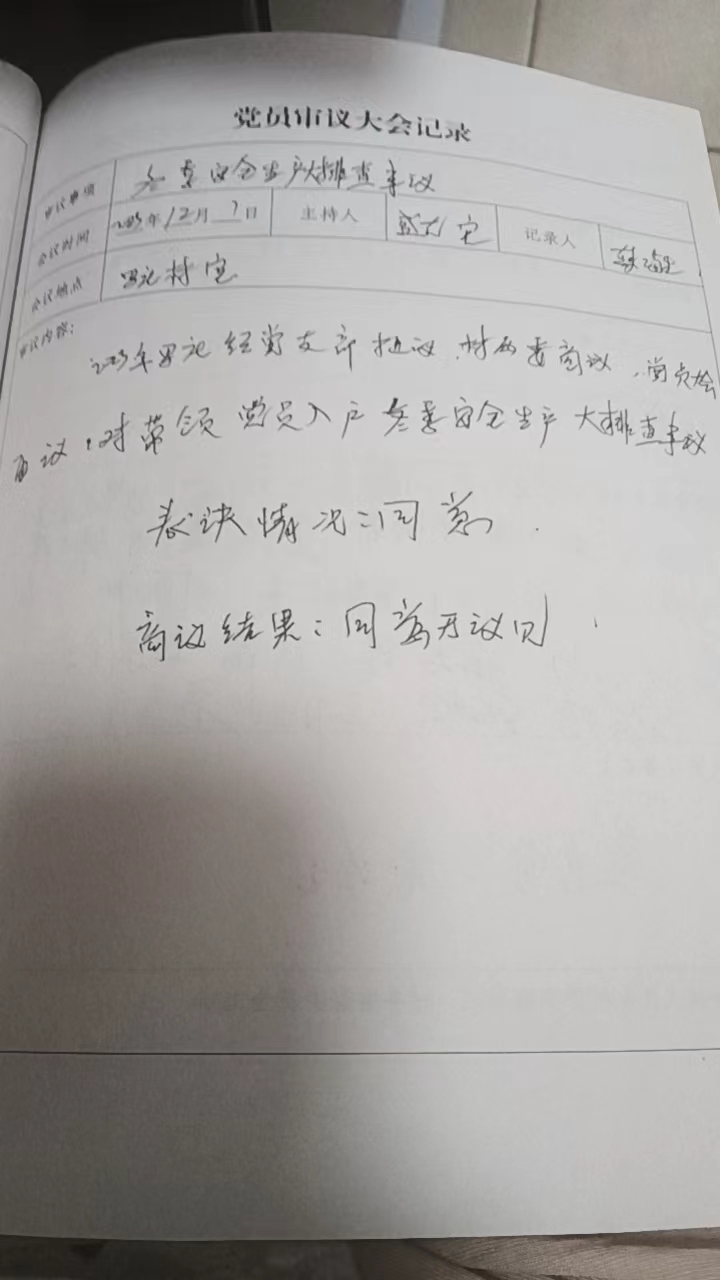 党员审议大会记录
审议事项 冬季安全生产大排查事议
会议时间 2023年12月7日 主持人 记录人
会议地点 村室
审议内容:
2023年 经党支部提议,村两委商议,党员大会
审议,对带领党员入户冬季安全生产大排查事议
表决情况:同意.
商议结果:同意无议见.